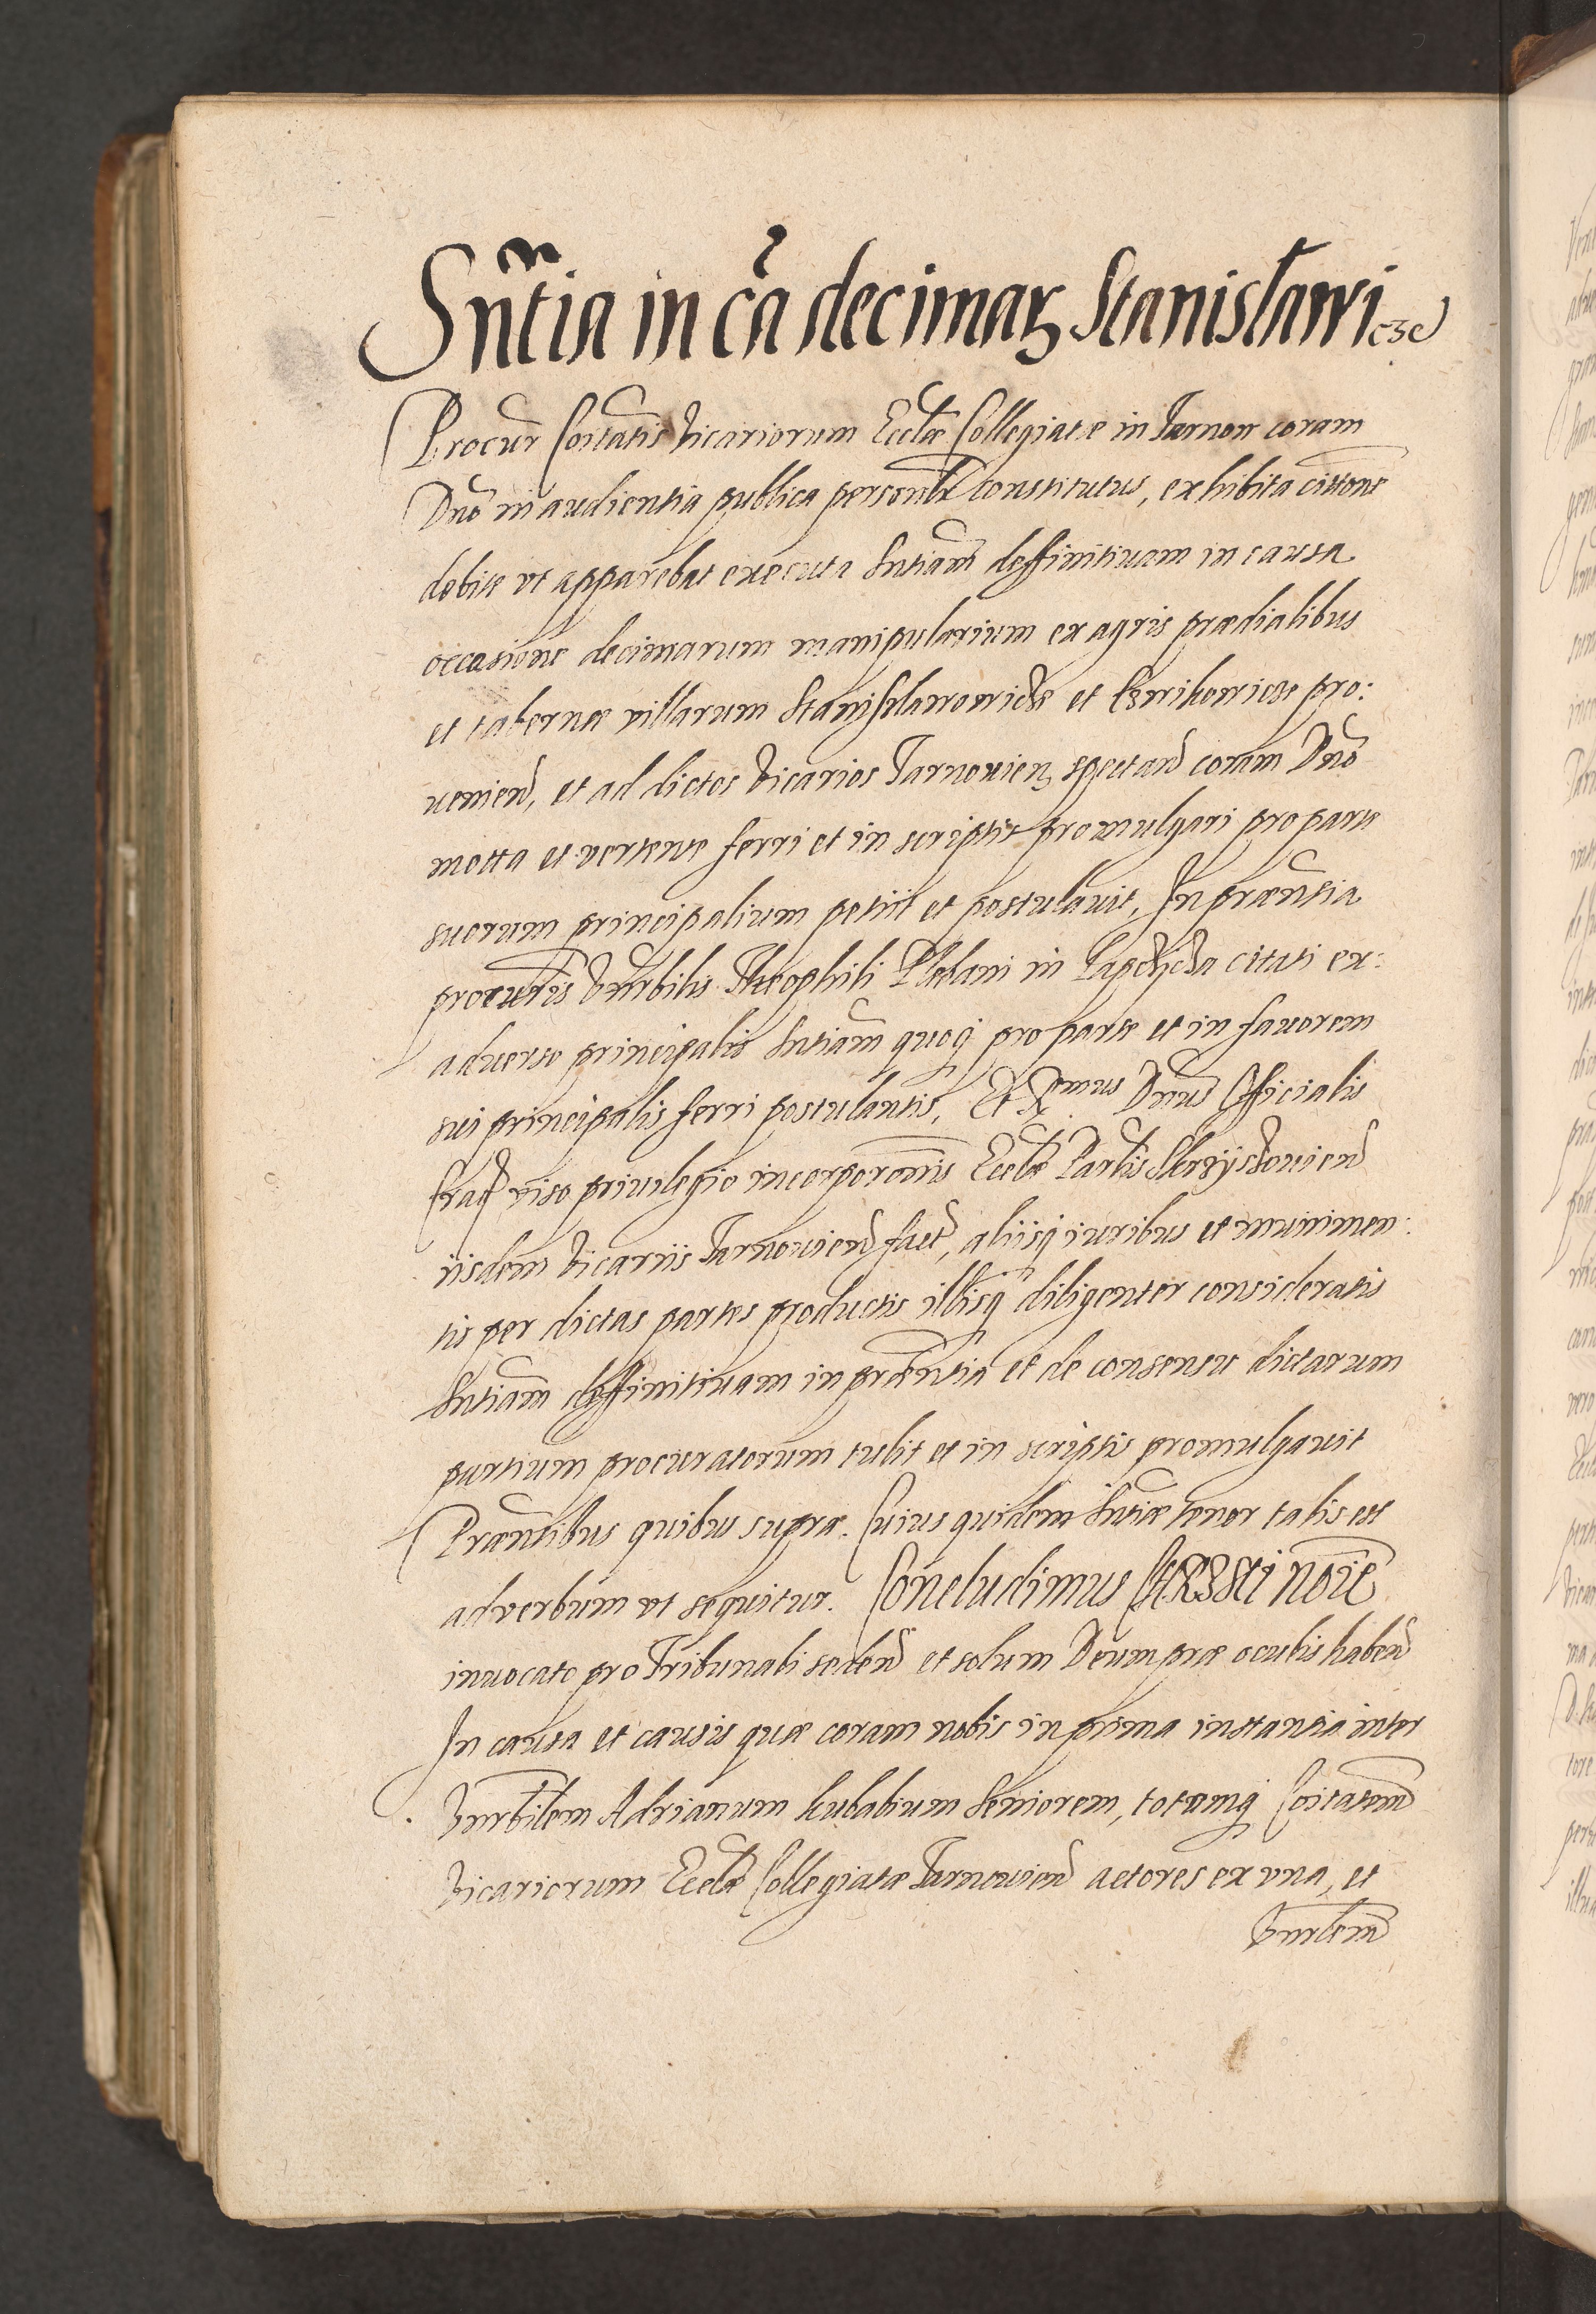 Sn̄tia in cā decimaꝝ Stanislawi cze
Procur̄ Cōitatis Vicariorum Eccl̄æ Collegiatæ in Tarnow coram
Dnō in audientia publica personl̄r constitutus, exhibita cit̄tione
debitæ vt apparebat executa Sn̄tiam deffinitiuam in causa
occasione decimarum manipularium ex agris prædialibus
et tabernæ villarum Stanislawowicze et Cwikowicze pro:
uenien̄, et ad dictos Vicarios Tarnouien̄ spectan̄ coram Dnō
motta et vertente ferri et in scriptis promulgari pro parte
suorum principalium petiit et postulauit, In præn̄tia
procur̄tis Vnr̄bilis Theophili Plebani in Lapczycza citati ex:
aduerso principalis Sn̄tiam quoq́ pro parte et in fauorem
sui principalis ferri postulantis, Et R.mus Dn̄us Officialis
Crac̄ viso priuilegio incorporōnis Eccl̄æ Parl̄is Skrzyszouien̄
iisdem Vicariis Tarnouien̄ fact̄, aliisq́ iuribus et munimen:
tis per dictas partes productis illisq́ diligenter consideratis
Sn̄tiam deffinitiuam in præn̄tia et de consensu dictarum
partium procuratorum tulit et in scriptis promulgauit
Præn̄tibus quibus supra. Cuius quidem Sn̄tiæ tenor talis est
ad verbum vt sequitur. Concludimus CHRISTI nōie
inuocato pro Tribunali seden̄ et solum Deum præ oculis haben̄
In causa et causis quæ coram nobis in prima instantia inter
Vnr̄bilem Adrianum Kubabium Seniorem, totamq́ Cōitatem
Vicariorum Eccl̄æ Collegiatæ Tarnouien̄ actores ex vna, et
Vnrb̄lem